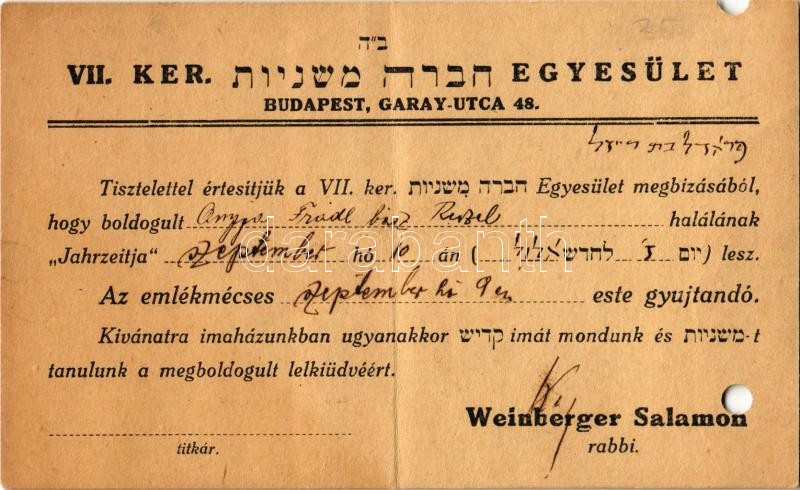 ב״ה
VII. KER. חברה משניות EGYESÜLET
BUDAPEST, GARAY-UTCA 48.
בת
Tisztelettel értesitjük a VII. ker. חברה משניות Egyesület megbizásából,
hogy boldogult Anyja Fradl bász halálának
„Jahrzeitja” szeptember hó 10 án ( יום לחדש אלול ) lesz.
Az emlékmécses szeptember hó 9 én este gyujtandó.
Kivánatra imaházunkban ugyanakkor קדיש imát mondunk és משניות-t
tanulunk a megboldogult lelkiüdvéért.
Weinberger Salamon
titkár.
rabbi.
darabanth